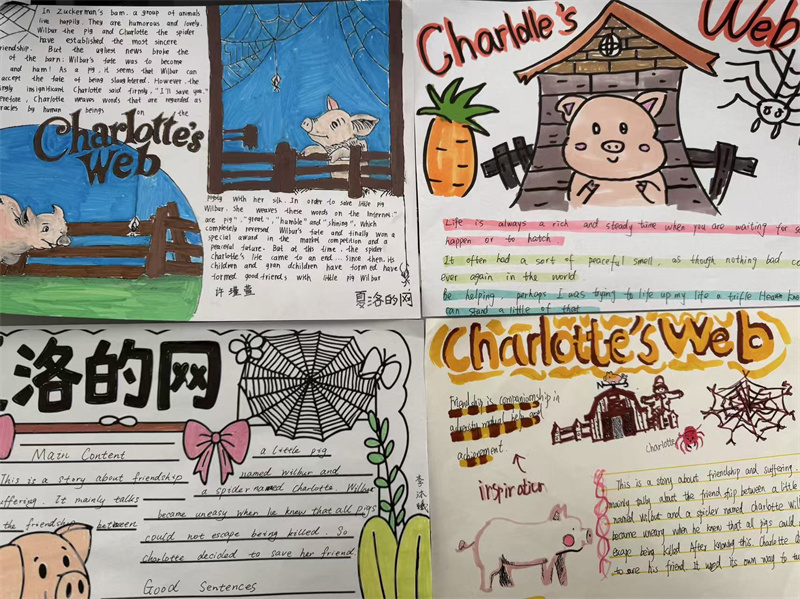 In Zuckerman's barn, a group of animals
live happily. They are humorous and lovely.
Wilbur the pig and Charlotte the spider
have established the most sincere
friendship. But the ugliest news broke the
of the barn: Wilbur's fate was to become
and ham! As a pig, it seems that Wilbur can
accept the fate of being slaughtered. However, the
ingly insignificant Charlotte said firmly, "I'll save you."
Charlotte weaves words that are regarded as
by human beings on the
Charlotte's
Web
with her silk. In order to save little pig
Wilbur. She weaves these words on the Internet:
pig". "great". "humble" and "shining", which
completely reversed Wilbur's fate and finally won a
special award in the market competition and a
peaceful future. But at this time, the spider
Charlotte's life came to an end... Since then, its
children and gran dchildren have formed have
formed good friends with little pig Wilbur
夏洛的网
Charlotte's Web
Life is always a rich and steady time when you are waiting for
happen or to hatch
It often had a sort of peaceful smell, as though nothing bad
ever again in the world
Be helping, perhaps I was trying to life up my life a trifle Heaven
can stand a little of that
洛的网
Main Content
This is a story about friendship
suffering. It mainly talks
the friendship between
a little pig
named Wilbur and
a spider named Charlotte. Wilbur
became uneasy when he knew that all pigs
could not escape being killed. So
Charlotte decided to save her friend.
Good Sentences
Charlotte's Web
Friendship is companionship in
adversity
achievement.
inspiration
Charlotte
This is a story about friendship and suffering.
mainly about the friendship between a little
named Wilbur and a spider named Charlotte
became uneasy when he knew that all pigs could
escape being killed. After knowing this, Charlotte
to save his friend. It used its own way to